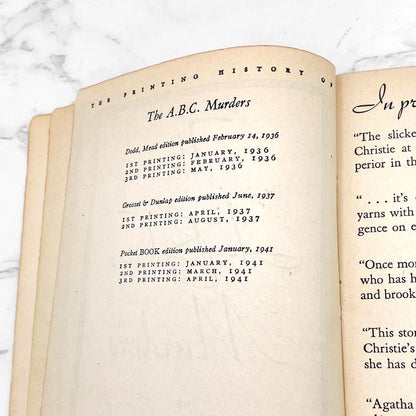 THE PRINTING HISTORY OF
The A.B.C. Murders
Dodd, Mead edition published February 14, 1936
1ST PRINTING: JANUARY, 1936
2ND PRINTING: FEBRUARY, 1936
3RD PRINTING: MAY, 1936
Grosset & Dunlap edition published June, 1937
1ST PRINTING: APRIL, 1937
2ND PRINTING: AUGUST, 1937
Pocket BOOK edition published January, 1941
1ST PRINTING: JANUARY, 1941
2ND PRINTING: MARCH, 1941
3RD PRINTING: APRIL, 1941
In pr
"The slicke
Christie at
perior in th
"...it's
yarns with
gence on e
"Once mor
who has h
and brook
"This stor
Christie's
she has d
"Agatha